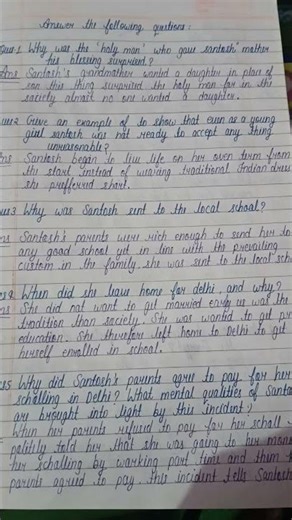 Answer the following questions:
Ques 1 Why was the 'holy man' who gave santosh' mother
his blessing surprised?
Ans Santosh's grandmother wanted a daughter in place of
son this thing surprised the holy man for in the
society almost no one wanted a daughter.
Ques2 Give an example of to show that even as a young
girl santosh was not ready to accept any thing
unreasonable?
Ans Santosh began to live life on her own term from
the start instead of wearing traditional Indian dress
she prefferred short.
ques3 Why was Santosh sent to the local school?
Ans Santosh's parents were rich enough to send her to
any good school yet in line with the prevailing
custom in the family. she was sent to the local scho
When did she leave home for delhi, and why?
She did not want to get married early as was the
tradition than society. She was wanted to get pr
education. She therefore left home to Delhi to get
herself enrolled in school.
5 Why did Santosh's parents agree to pay for her
schelling in Delhi? What mental qualities of Santo
are brought into light by this incident?
When her parents refused to pay for her schall
politily told her that she was going to her mone
her schalling by working part time and them
parents agreed to pay. this incident tells Santosh